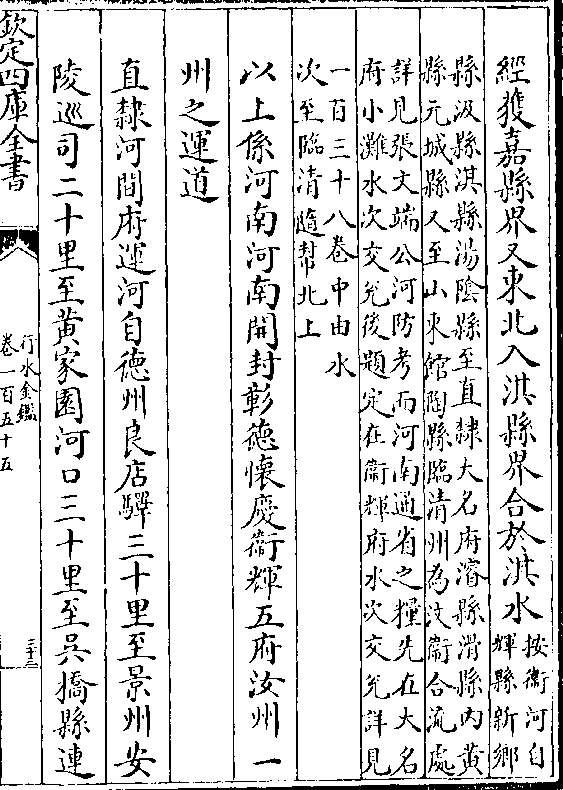 經獲嘉縣界又東北入淇縣界合於淇水
按衞河自
輝縣新鄉
縣汲縣淇縣湯陰縣至直隸大名府濬縣滑縣内黃
縣元城縣又至山東館陶縣臨清州為汶衞合流處
詳見張文端公河防考而河南通省之糧先在大名
府小灘水次交兊後題定在衞輝府水次交兊詳見
一百三十八卷中由水
次至臨清隨幫北上
以上係河南河南開封彰德懷慶衞輝五府汝州一
州之運道
直隸河間府運河自德州良店驛三十里至景州安
陵廵司二十里至黃家園河口三十里至吳橋縣連
欽定四庫全書
行水金鑑
卷一百五十五